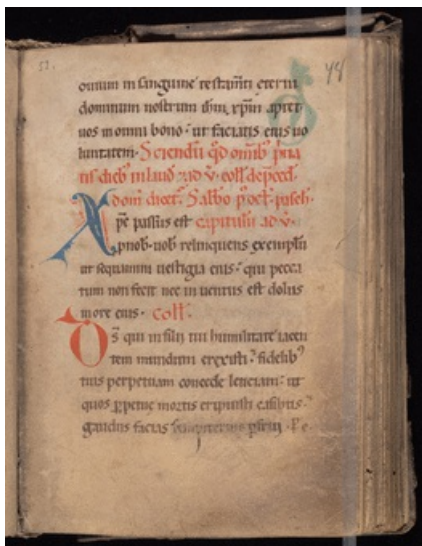 51.
44
omium in sanguine testam̄ti eterni
dominum nostrum ih̄m xp̄m aptet
uos in omni bono ut faciatis eius uo
luntatem. Sciendū qd̄ omīb; p̄ua
tis dieb; in laud̾
d̄om̄
Xp̄c passus est capitulū ad v̄.
p nob uob relinquens exemplū
ut sequamini uestigia eius: qui pecca
tum non fecit nec inuentus est dolus
in ore eius. coll̄.
Ds̄ qui in filij tui humilitate iacen
tem mundum erexisti: fidelib;
tuis perpetuam concede leticiam: ut
quos ꝑpetue mortis eripuisti casibus:
gaudiis facias ꝑfrui. P̄ e.